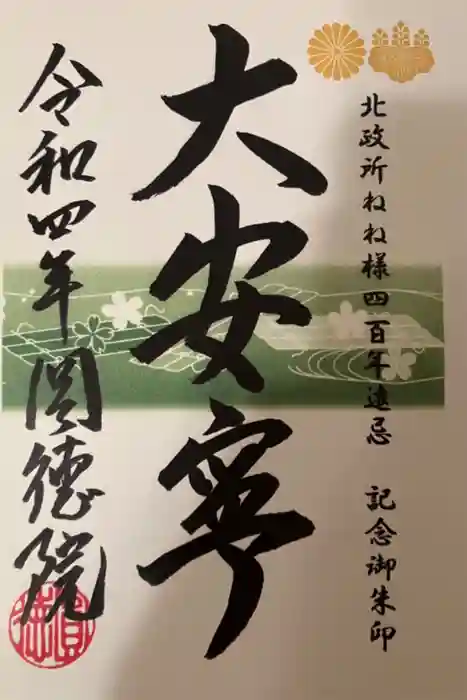 北政所ねね様四百年遠忌 記念御朱印
大安寧
令和四年 圓徳院